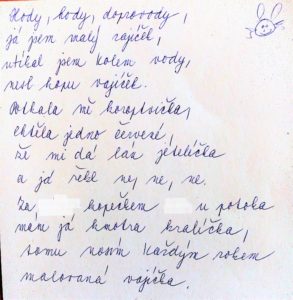 Hody, hody, doprovody,
já jsem malý zajíček,
utíkal jsem kolem vody,
nesl kopu vajíček.
Potkala mě koroptvička,
chtěla jedno červené,
že mi dá lán jetelíčka
a já řekl ne, ne, ne.
Za kopečkem u potoka
mám já kmotra králíčka,
tomu nosím každým rokem
malovaná vajíčka.